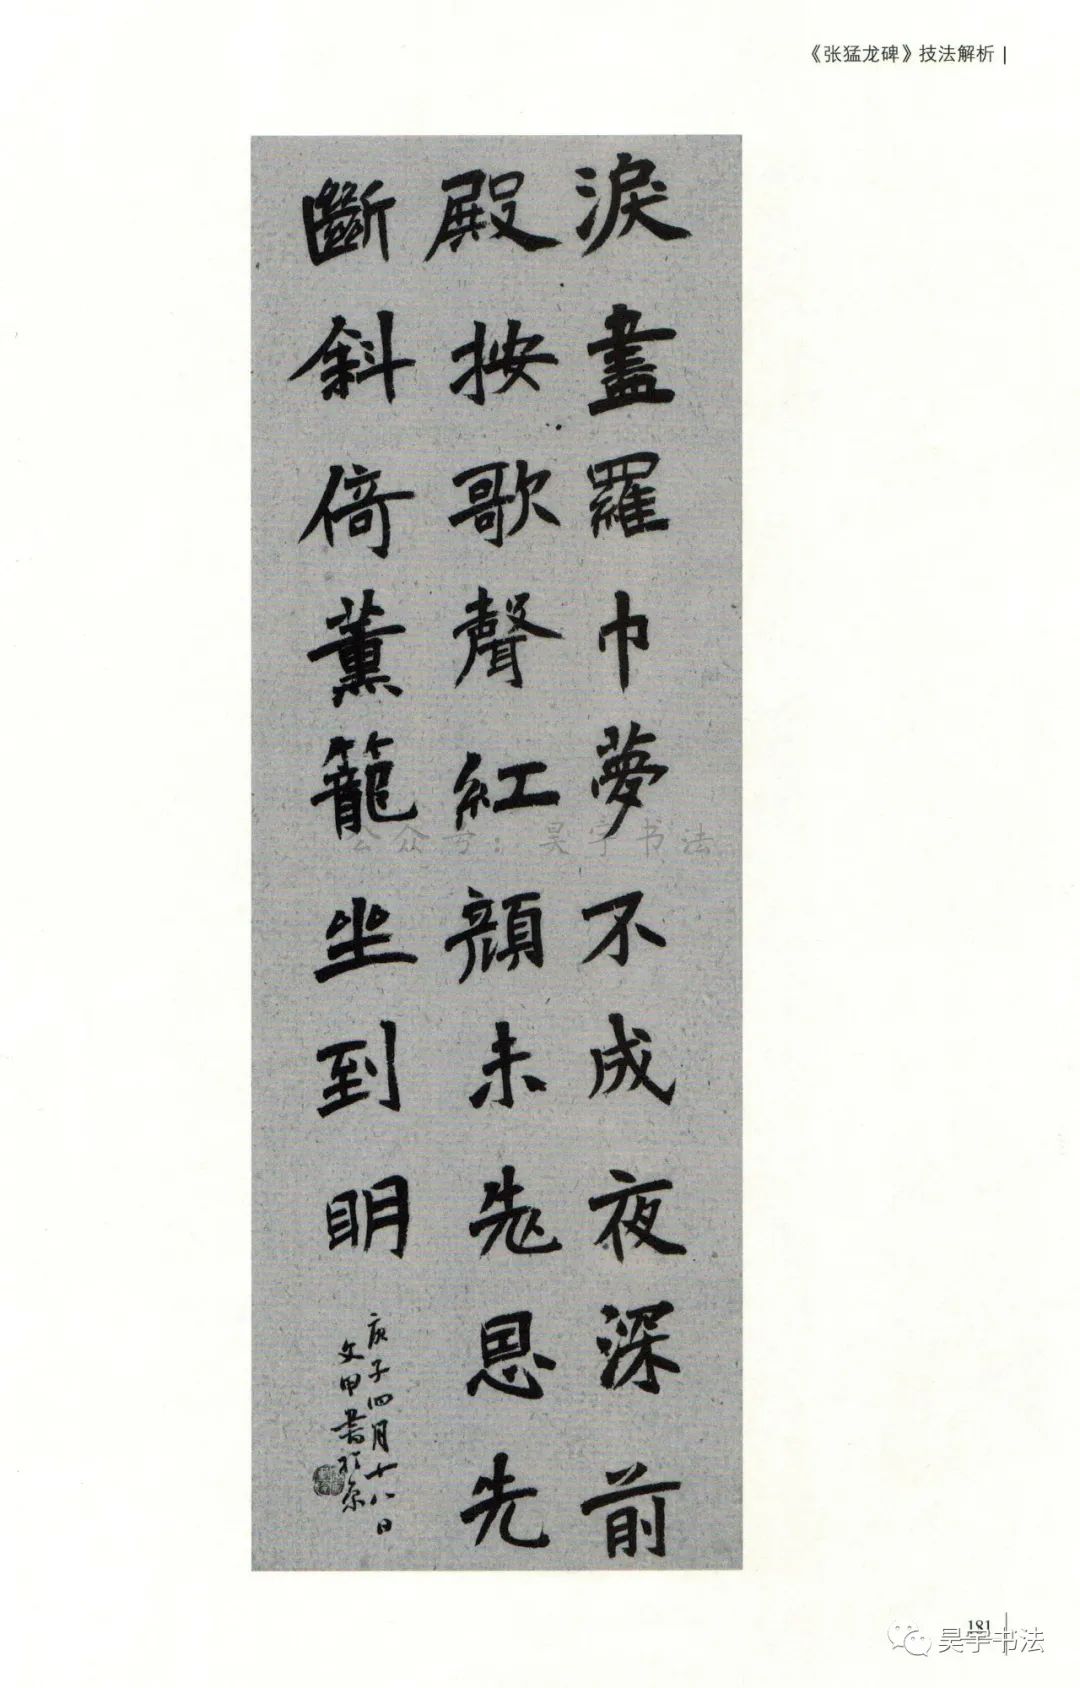 《张猛龙碑》技法解析
淚盡羅巾夢不成夜深前
殿按歌聲紅顏未老恩先
斷斜倚薰籠坐到明
庚子四月十八日
文甲書於京
公众号：昊宇书法
181
昊宇书法